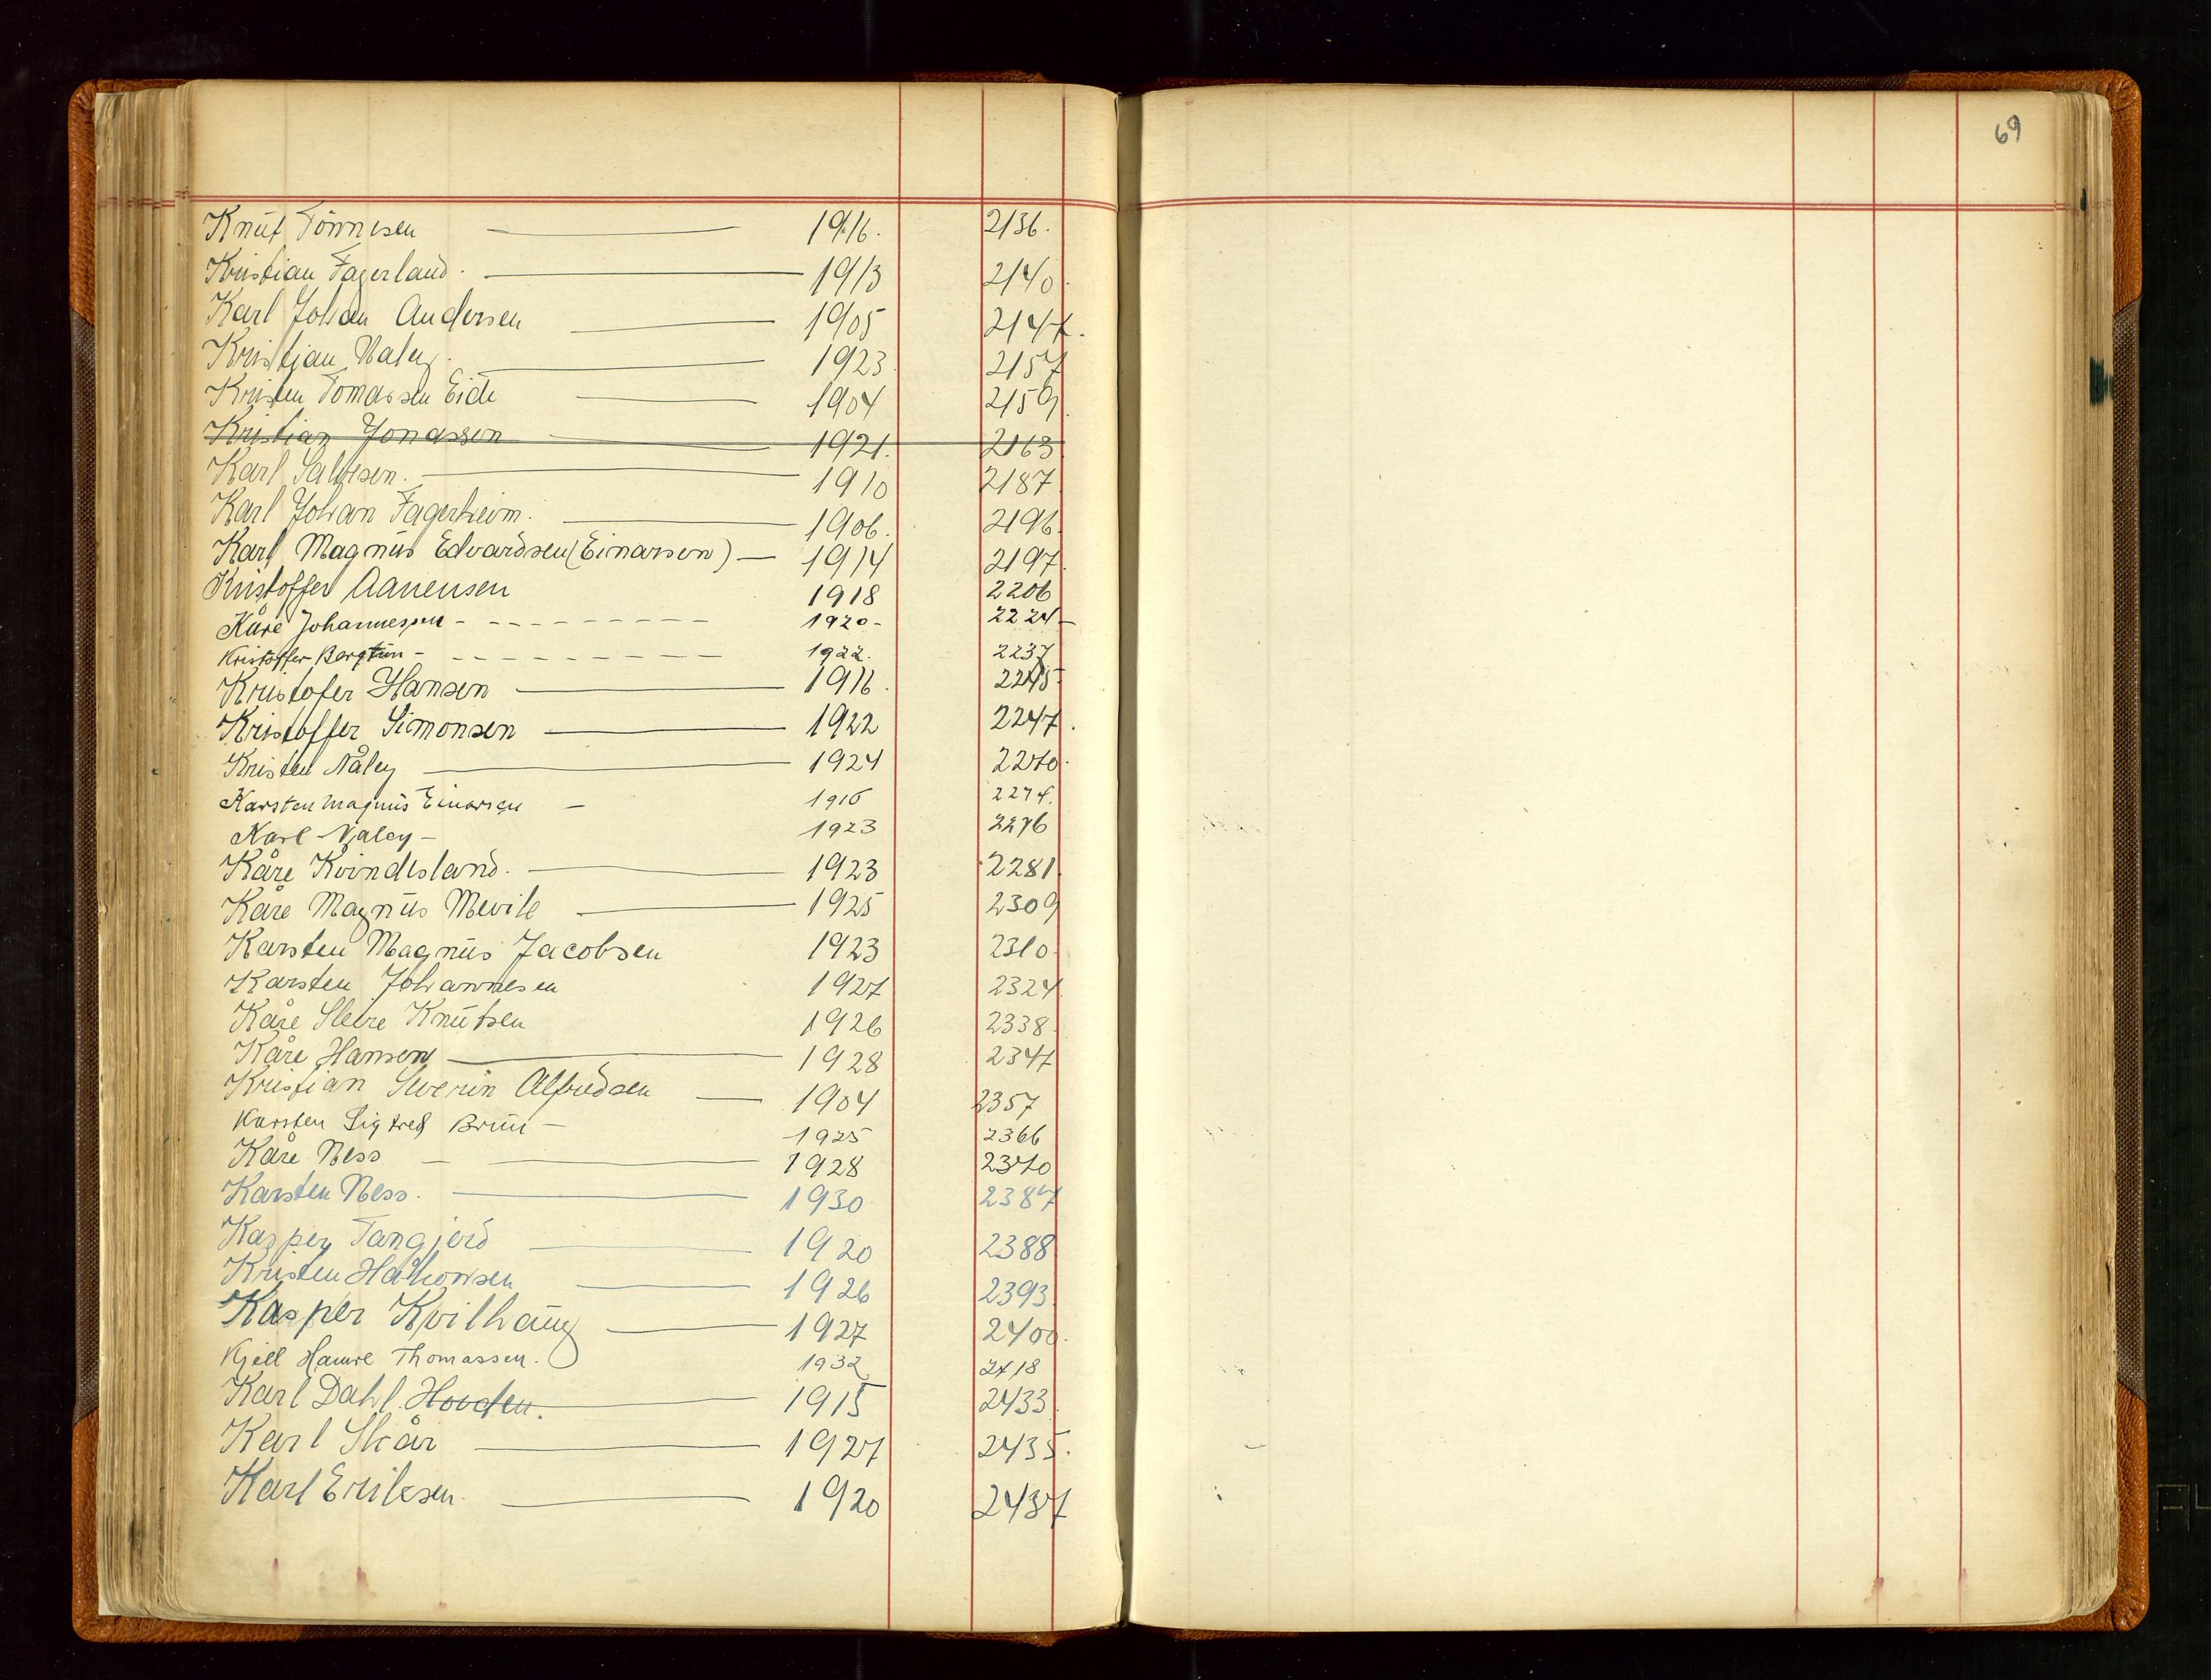 69
Knut Tönnesen 1916. 2136.
Kristian Fagerland. 1913 2140.
Karl Johan Andersen 1905 2147.
Kristian Naley. 1923 2157
Kristen Tomassen Eide 1904 2159.
Kristian Jonassen 1921. 2163
Karl Salvesen. 1910 2187
Karl Johan Fagerheim. 1906. 2196
Karl Magnus Edvardsen (Einarsen) — 1914 2197.
Kristoffer Aanensen 1918 2206
Kåre Johannessen - 1920- 2224-
Kristoffer Bergtun - 1922. 2237
Kristofer Hansen 1916. 2245
Kristoffer Simonsen 1922 2247.
Kristen Nåley 1924 2270.
Karsten Magnus Einarsen — 1916 2274.
Karl Naley — 1923 2276
Kåre Kvindesland. 1923 2281.
Kåre Magnus 1925 2309
Karsten Magnus Jacobsen 1923 2310.
Karsten Johannesen 1927 2324.
Kåre Knutsen 1926 2338.
Kåre Hansen 1928 2347
Kristian Severin Alfredsen 1904 2357
Karsten Sigfred Bruu — 1925 2366
Kåre Ness 1928 2370
Karsten Ness. 1930 2387
Kasper Tangjerd 1920 2388
Kristen Håkonsen 1926 2393.
Kasper Kvilhaug 1927 2400.
Kjell Thomassen. 1932 2418
Karl Dahl. Hovden. 1915 2433.
Karl Skår 1927 2435.
Karl Eriksen 1920 2437